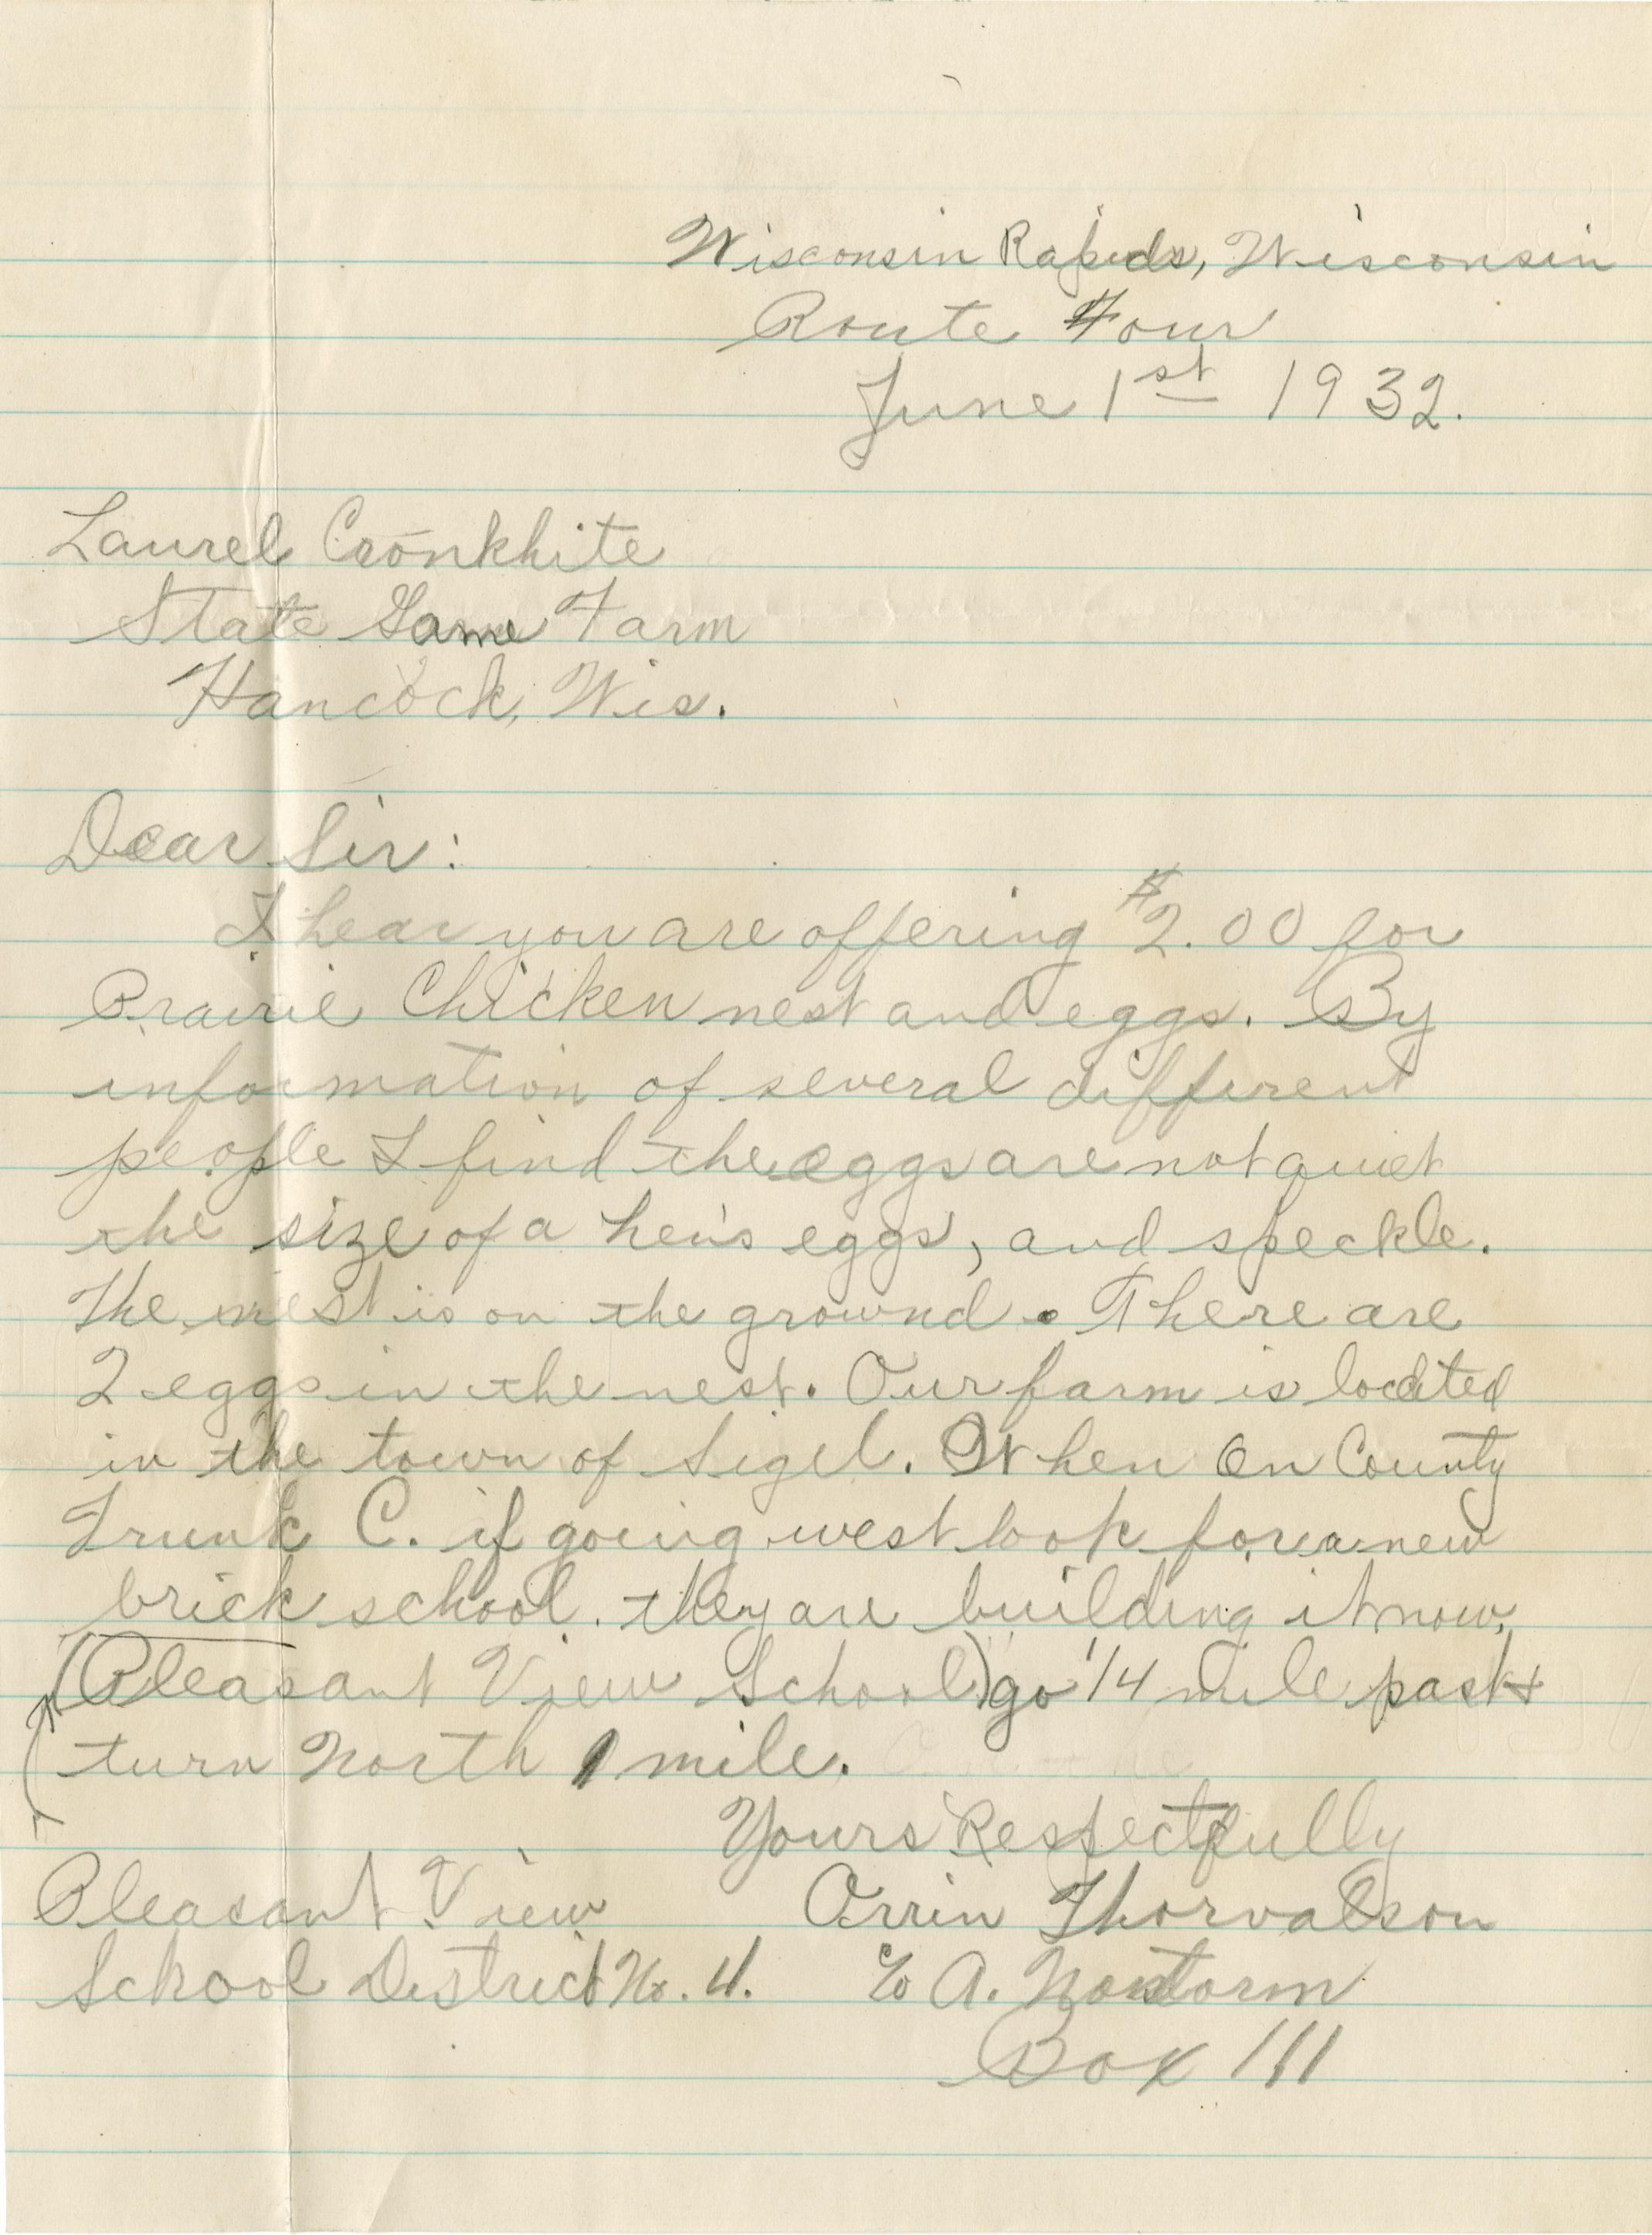 Wisconsin Rapids, Wisconsin
Route Four
June 1st 1932.
Laurel Cronkhite
State Game Farm
Hancock, Wis.
Dear Sir:
I hear you are offering $2.00 for
Prairie Chicken nest and eggs. By
information of several different
people I find the eggs are not quiet
the size of a hen's eggs, and speckle.
The nest is on the grownd. There are
2 eggs in the nest. Our farm is located
in the town of Sigel. When on County
Trunk C. if going west look for a new
brick school. they are building it now.
(Pleasant View School) go 1/4 mile past &
turn North 1 mile.
Yours Respectfully
Pleasant View Orrin Thorvalson
School District No. 4. c/o A.
Box 111